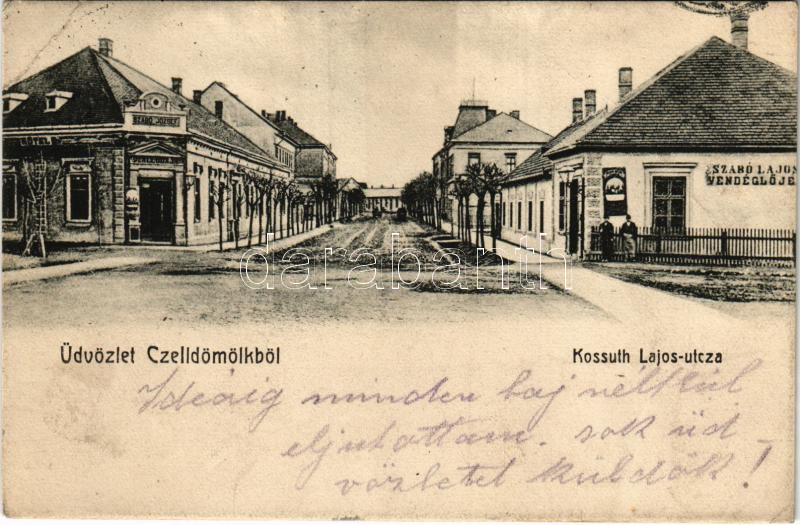 SZABÓ JÓZSEF
SZABÓ LAJOS
VENDÉGLŐJE
darabanth.com
Üdvözlet Czelldömölkböl
Kossuth Lajos-utcza
Ideáig minden baj nélkül
eljutottam. sok üd_
vözletet küldök!